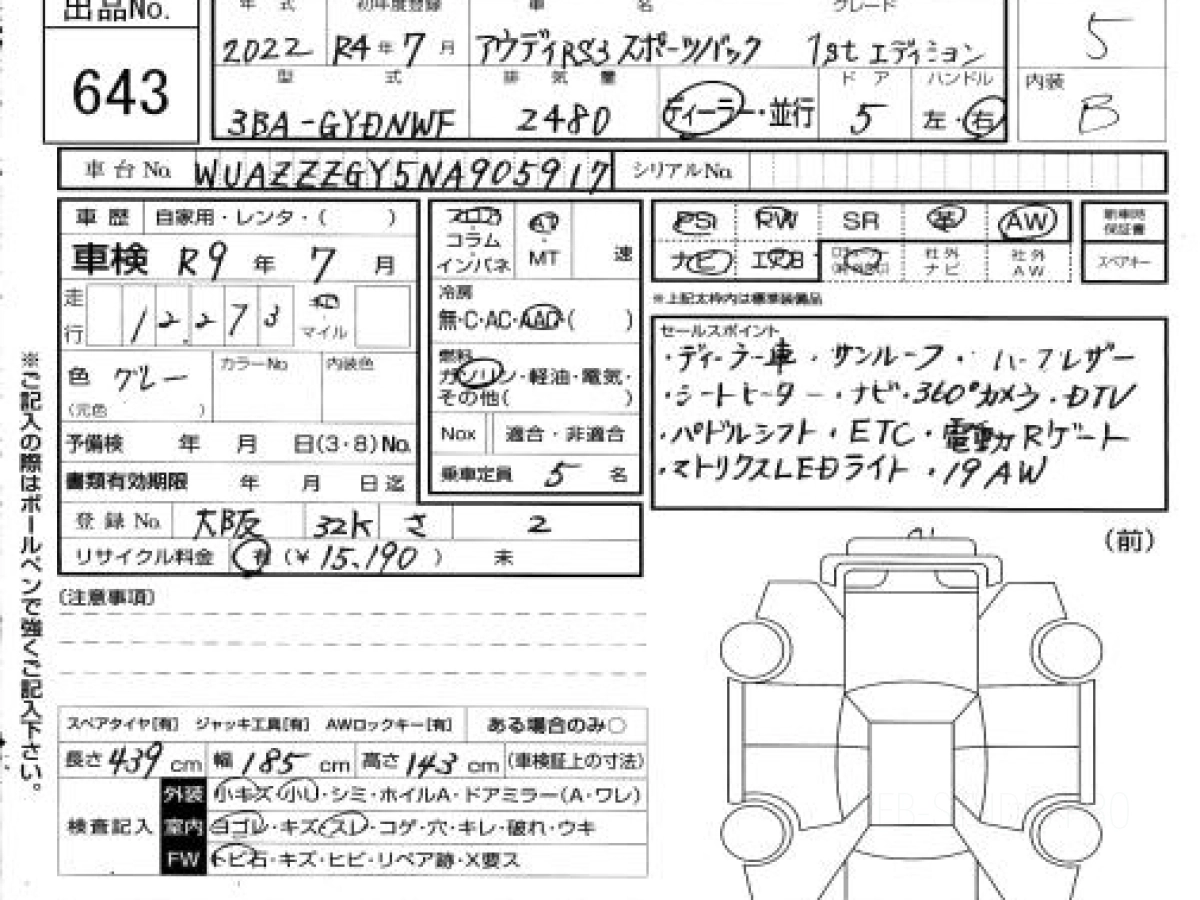 出品No.
643
年式 初年度登録 車名 グレード
2022 R4年7月 アウディRS3 スポーツバック 1st エディション
型式 排気量 ドア ハンドル
3BA-GYDNWF 2480 ディーラー・並行 5 左・右
5
内装
B
車台No. WUAZZZGY5NA905917 シリアルNo.
車歴 自家用・レンタ・( )
車検 R9年 7月
走行 12,273 マイル
色 グレー カラーNo 内装色
(元色 )
予備検 年 月 日(3・8)No.
書類有効期限 年 月 日迄
登録No. 大阪 32K さ 2
リサイクル料金 有 (¥15,190) 未
フロア
コラム
インパネ
AT
MT
速
冷房
無・C・AC・AAC( )
燃料
ガソリン・軽油・電気・
その他( )
Nox 適合・非適合
乗車定員 5名
PS RW SR 革 AW
ナビ エアB
社外ナビ
社外AW
新車時保証書
スペアキー
※上記太枠内は標準装備品
セールスポイント
・ディーラー車・サンルーフ・ハーフレザー
・シートヒーター・ナビ・360°カメラ・DTV
・パドルシフト・ETC・電動Rゲート
・マトリクスLEDライト・19AW
(前)
※ご記入の際はボールペンで強くご記入下さい。
(注意事項)
スペアタイヤ[有] ジャッキ工具[有] AWロックキー[有] ある場合のみ○
長さ439cm 幅185cm 高さ143cm (車検証上の寸法)
検査記入
外装 小キズ・小U・シミ・ホイルA・ドアミラー(A・ワレ)
室内 ヨゴレ・キズ・スレ・コゲ・穴・キレ・破れ・ウキ
FW トビ石・キズ・ヒビ・リペア跡・X要ス